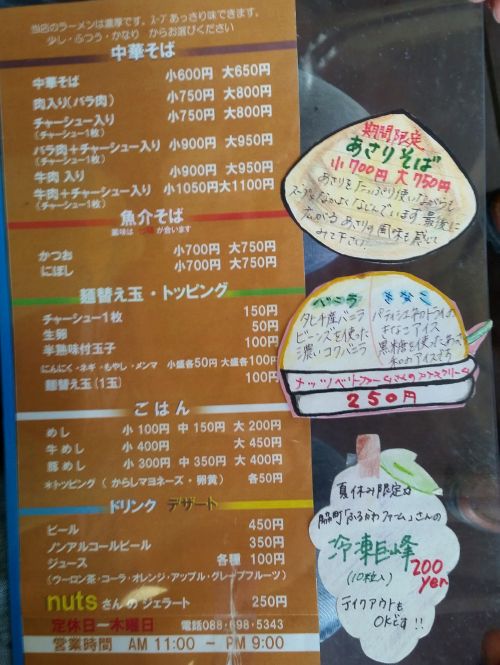 当店のラーメンは濃厚です。スープあっさり味できます。
少し・ふつう・かなり からお選びください
中華そば
中華そば 小600円 大650円
肉入り(バラ肉) 小750円 大800円
チャーシュー入り 小750円 大800円
(チャーシュー1枚)
バラ肉+チャーシュー入り 小900円 大950円
(チャーシュー1枚)
牛肉 入り 小900円 大950円
牛肉+チャーシュー入り 小1050円 大1100円
(チャーシュー1枚)
魚介そば
薬味は が合います
かつお 小700円 大750円
にぼし 小700円 大750円
麺替え玉・トッピング
チャーシュー1枚 150円
生卵 50円
半熟味付玉子 100円
にんにく・ネギ・もやし・メンマ 小盛各50円 大盛各100円
麺替え玉(1玉) 100円
ごはん
めし 小 100円 中 150円 大 200円
牛めし 小 400円 大 450円
豚めし 小 300円 中 350円 大 400円
*トッピング ( からしマヨネーズ・卵黄 ) 各50円
ドリンク デザート
ビール 450円
ノンアルコールビール 350円
ジュース 各種 100円
(ウーロン茶・コーラ・オレンジ・アップル・グレープフルーツ)
nuts さん の ジェラート 250円
定休日ー木曜日 電話088-698-5343
営業時間 AM 11:00 - PM 9:00
期間限定
あさりそば
小700円 大750円
あさりをたっぷり使いながらも
スープとなかよくなじんでいます 最後に
広がる あさりの風味を感じて
みて下さい
バニラ
タヒチ産バニラ
ビーンズを使った
濃いコクバニラ
きなこ
きなこアイス
黒糖を使ったあ
ナッツベリーファームさんのアイスクリーム
250円
夏休み限定
「ふるかわファーム」さんの
冷凍巨峰
(10粒入)
200
yen
テイクアウトも
OKです!!